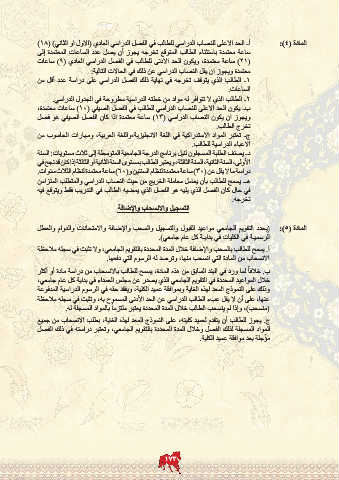 المادة (٤): أ. الحد الأعلى للنصاب الدراسي للطالب في الفصل الدراسي العادي (الأول أو الثاني) (١٨)
ساعة معتمدة باستثناء الطالب المتوقع تخرجه يجوز أن يصل عدد الساعات المعتمدة إلى
(٢١) ساعة معتمدة، ويكون الحد الأدنى للطالب في الفصل الدراسي العادي (٩) ساعات
معتمدة ويجوز أن يقل النصاب الدراسي عن ذلك في الحالات التالية:
١. الطالب الذي يتوقف تخرجه في نهاية ذلك الفصل الدراسي على دراسة عدد أقل من
الساعات.
٢. الطالب الذي لا تتوافر له مواد من خطته الدراسية مطروحة في الجدول الدراسي.
ب. يكون الحد الأعلى للنصاب الدراسي للطالب في الفصل الصيفي (١٠) ساعات معتمدة،
ويجوز أن يكون النصاب الدراسي (١٣) ساعة معتمدة إذا كان الفصل الصيفي هو فصل
تخرج الطالب.
ج. تعتبر المواد الاستدراكية في اللغة الانجليزية واللغة العربية، ومهارات الحاسوب من
الأعباء الدراسية للطالب.
د. يصنف الطلبة المسجلون لنيل برنامج الدرجة الجامعية المتوسطة إلى ثلاث مستويات: السنة
الأولى، السنة الثانية، السنة الثالثة، ويعتبر الطالب بمستوى السنة الثانية أو الثالثة إذا كان قد نجح في
دراسة ما لا يقل عن (٣٠) ساعة معتمدة لنظام السنتين و(٦٠) ساعة معتمدة لنظام الثلاث سنوات.
هـ. يسمح للطالب بأن يعامل معاملة الخريج من حيث النصاب الدراسي والمتطلب المتزامن
في حال كان الفصل الذي يليه هو الفصل الذي يمضيه الطالب في التدريب فقط ويتوقع فيه
تخرجه.
التسجيل والانسحاب والإضافة
المادة (٥): (يحدد التقويم الجامعي مواعيد القبول والتسجيل والسحب والإضافة والامتحانات والدوام والعطل
الرسمية في الكليات في بداية كل عام جامعي).
أ. يسمح للطالب بالسحب والإضافة خلال المدة المحددة بالتقويم الجامعي، ولا تثبت في سجله ملاحظة
الانسحاب من المادة التي انسحب منها، وترصد له الرسوم التي دفعها.
ب. خلافاً لما ورد في البند السابق من هذه المادة، يسمح للطالب بالانسحاب من دراسة مادة أو أكثر
خلال المواعيد المحددة في التقويم الجامعي الذي يصدر عن مجلس العمداء في بداية كل عام جامعي،
وذلك على النموذج المعد لهذه الغاية وبموافقة عميد الكلية، ويفقد حقه في الرسوم الدراسية المدفوعة
عنها، على أن لا يقل عبء الطالب الدراسي عن الحد الأدنى المسموح به، وتثبت في سجله ملاحظة
(منسحب)، وإذا لم ينسحب الطالب خلال المدة المحددة يعتبر ملتزماً بالمواد المسجلة له.
ج. يجوز للطالب أن يتقدم لعميد كليته، على النموذج المعد لهذه الغاية، بطلب الانسحاب من جميع
المواد المسجلة لذلك الفصل وخلال المدة المحددة بالتقويم الجامعي، وتعتبر دراسته في ذلك الفصل
مؤجلة بعد موافقة عميد الكلية.
١٧٣